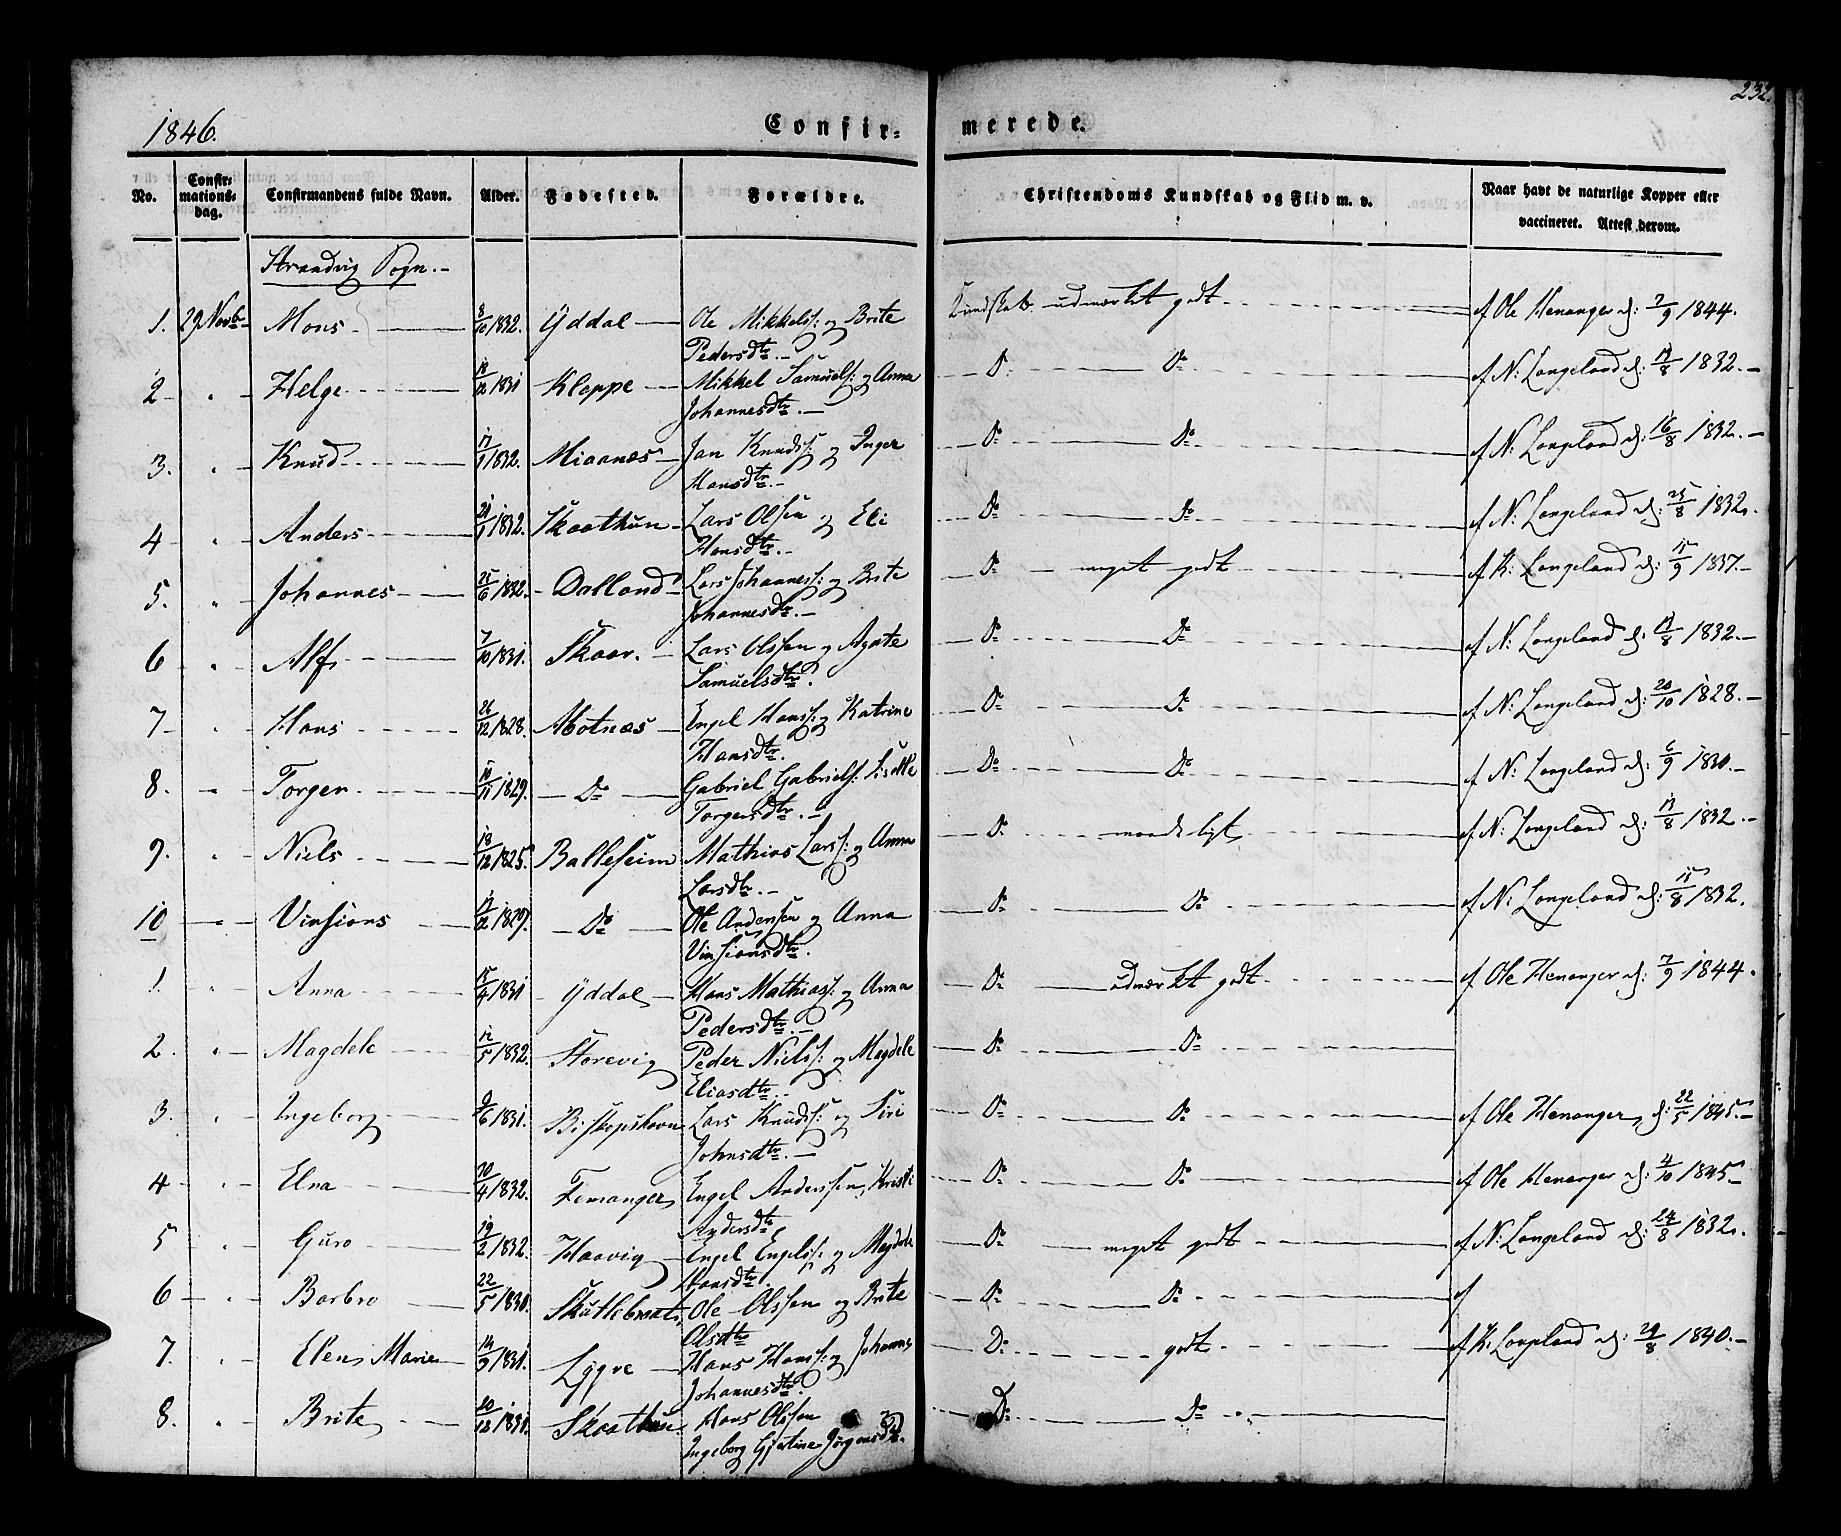 232.
1846.
Confir- merede.
No. Confirmations-dag. Confirmandens fulde Navn. Alder. Fødested. Forældre. Christendoms Kundskab og Flid m. v. Naar havt de naturlige Kopper eller vaccineret. Attest derom.
Strandvig Sogn.-
1. 29 Novb. Mons 8/10 1832. Yddal Ole Mikkels: og Brite Kundskab udmærket godt af Ole Henanger d: 7/9 1844.
Pedersdtr.-
2 " Helge 18/12 1831 Kleppe Mikkel Samuels: og Anna Do Do af N: Longeland d: 17/8 1832.-
Johannesdtr.-
3. " Knud 17/1 1832. Miaanæs Jan Knuds: og Inger Do Do af N: Longeland d: 16/8 1832.-
Monsdtr.-
4 " Anders 21/1 1832. Skaathun Lars Olsen og Eli Do Do af N: Longeland d: 25/8 1832.
Hansdtr.-
5. " Johannes 25/6 1832. Dalland Lars Johanness: og Brite Do meget godt af K: Longeland d: 15/9 1837.-
Johannesdtr.-
6 " Alf 7/10 1831. Skaar. Lars Olsen og Agate Do Do af N: Longeland d: 17/8 1832.-
Samuelsdtr.
7 " Hans 26/12 1828. Motnæs Engel Hanss: og Katrine Do Do af N: Longeland d: 20/10 1828.-
Hansdtr.
8. " Torger 16/11 1829. Do Gabriel Gabriels: Siselle Do Do af N: Longeland d: 6/9 1830.-
Torgersdtr.-
9. " Niels 18/12 1825. Balleseim Mathias Lars: og Anna Do maadeligt af N: Longeland d: 17/8 1832.-
Larsdtr.-
10 " Vinsians 17/12 1829. Do Ole Andersen og Anna Do Do af N: Longeland d: 15/8 1832.
Vinsiansdtr.
1. " Anna 15/4 1831 Yddal Hans Mathias: og Anna Do udmærket godt af Ole Henanger d: 7/9 1844.
Pedersdtr.-
2. " Magdele 12/5 1832. Storevig Peder Niels: og Magdele Do Do
Eliasdtr.-
3. " Ingeborg 9/6 1831. Biskopshavn Lars Knuds: og Siri Do Do af Ole Henanger d: 22/5 1845.-
Johnsdtr.-
4 " Elna 20/4 1832. Femanger Engel Anderssen, Kristi Do Do af Ole Henanger d: 4/10 1845.
Andersdtr
5 " Guro 19/2 1832. Haavig Engel Engels: og Magdele Do meget godt af N: Longeland d: 24/8 1832.
Hansdtr.
6 " Barbro 22/5 1830. Ole Olssen og Brite Do Do af
Olsdtr
7. " Elen Marie 14/9 1831. Lygre Hans Hans: og Johanne Do godt af K: Longeland d: 29/8 1840.-
Johannesdtr.
8. " Brite 20/12 1831. Skaathun Hans Olssen Do Do
Ingeborg Gjertine Jørgensdtr.